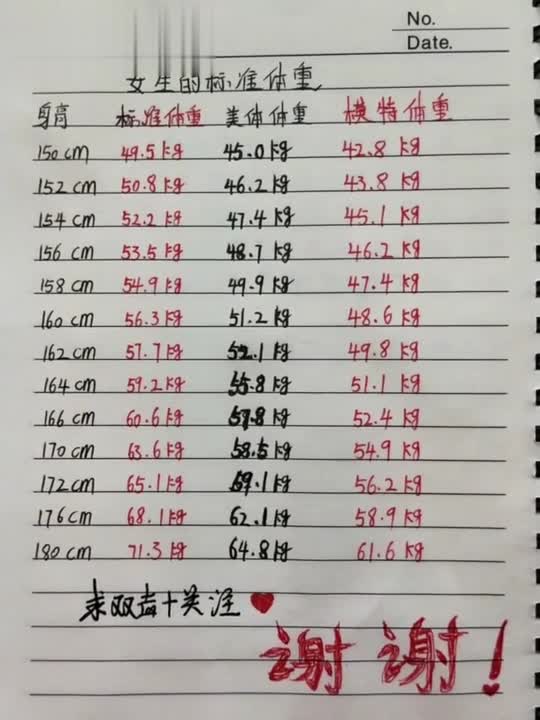 No.
Date.
女生的标准体重
身高 标准体重 美体体重 模特体重
150cm 49.5kg 45.0kg 42.8kg
152cm 50.8kg 46.2kg 43.8kg
154cm 52.2kg 47.4kg 45.1kg
156cm 53.5kg 48.7kg 46.2kg
158cm 54.9kg 49.9kg 47.4kg
160cm 56.3kg 51.2kg 48.6kg
162cm 57.7kg 52.1kg 49.8kg
164cm 59.2kg 55.8kg 51.1kg
166cm 60.6kg 57.8kg 52.4kg
170cm 63.6kg 58.5kg 54.9kg
172cm 65.1kg 59.1kg 56.2kg
176cm 68.1kg 62.1kg 58.9kg
180cm 71.3kg 64.8kg 61.6kg
求双击+关注
谢谢!